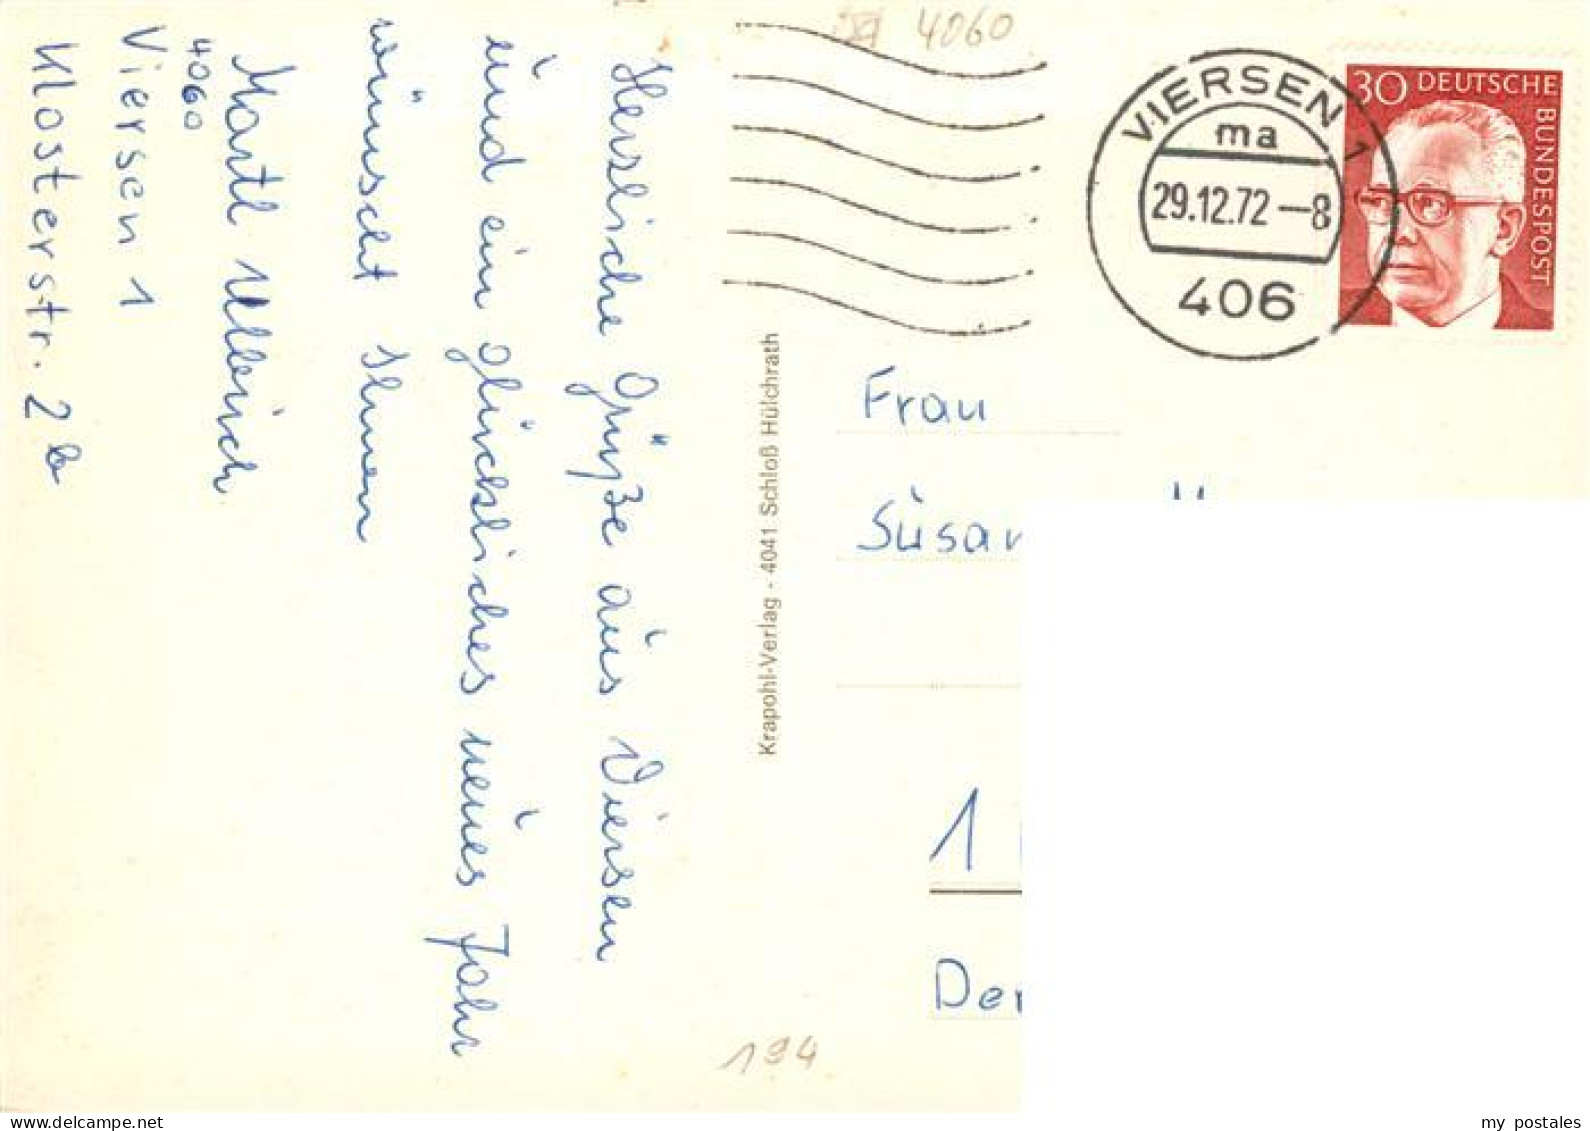 Herzliche Grüße aus Viersen
und ein glückliches neues Jahr
wünscht Ihnen
Martl Ullrich
4060
Viersen 1
Klosterstr. 2b
Krapohl-Verlag - 4041 Schloß Hülchrath
4060
VIERSEN 1
ma
29.12.72 -8
406
30 DEUTSCHE
BUNDESPOST
Frau
1
194
my postales